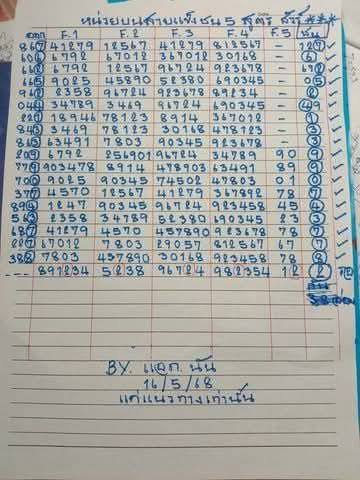 หน่วยบนสายแพ้ชน 5 สูตร
F.1 F.2 F.3 F.4 F.5 ชน
867 41279 12567 41279 812567 - 127
606 6792 67012 367012 30168 - 6
662 6792 12567 96724 923678 - 692
665 9025 45890 52380 690345 - 05
942 2358 96724 923678 89234 - 2
044 34789 3469 96724 690345 - 49
221 18946 78123 8914 367012 - 1
843 3469 78123 30168 478123 - 3
863 63491 7803 90345 923678 - 3
209 6792 256901 96724 34789 90 9
779 903478 8914 478903 63491 89 9
700 9025 90345 774502 47803 01 0
377 4570 12567 41279 367892 78 7
894 1247 90345 96724 923458 45 4
563 2358 34789 52380 690345 23 3
687 41279 4570 457890 923678 78 7
227 67012 7803 29057 812567 67 7
388 7803 457890 30168 923458 78 8
--- 891234 5238 96724 982354 12 2
BY. แอก. นัน
16/5/68
แค่แนวทางเท่านั้น